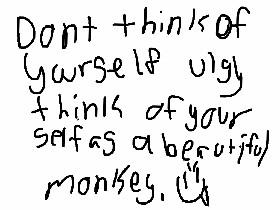 Dont think of
yourself ulgy
think of your
self as a beautiful
monkey.